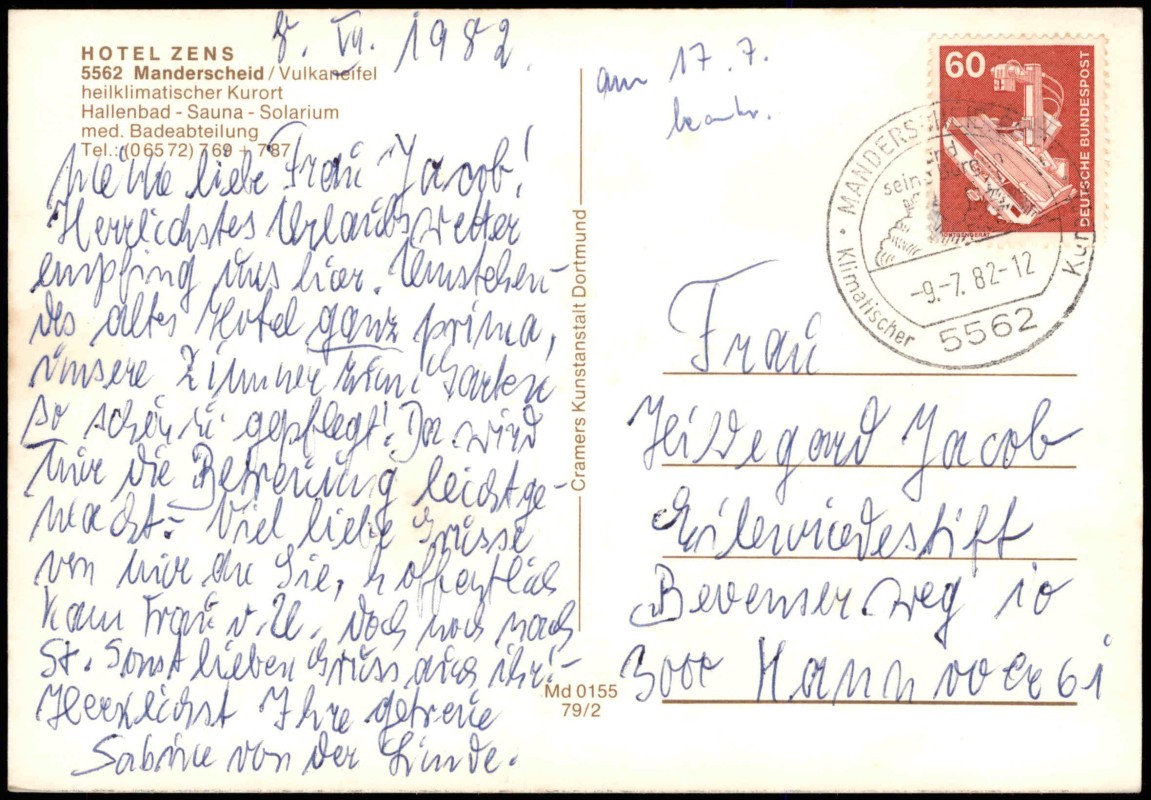 8. VII. 1982
HOTEL ZENS
5562 Manderscheid / Vulkaneifel
heilklimatischer Kurort
Hallenbad - Sauna - Solarium
med. Badeabteilung
Tel.: (06572) 769 + 787
Meine liebe Frau Jacob!
Herrlichstes Urlaubswetter
empfing uns hier. Umstehen-
des altes Hotel ganz prima,
unsere Zimmer zum Garten
so schön gepflegt! Da wird
mir die Betreuung leichtge-
macht. Viel liebe Grüsse
von mir an Sie, hoffentlich
kam Frau v. U. doch noch nach
St. Sonst lieben Gruss auch ihr!
Herzlichst Ihre getreue
Sabine von der Linde.
Cramers Kunstanstalt Dortmund
Md 0155
79/2
am 17. 7.
beantw.
60
DEUTSCHE BUNDESPOST
RÖNTGENGERÄT
MANDERSCHEID
seine Burgen
-9.-7.82-12
5562
Klimatischer Kur
Frau
Hildegard Jacob
Eilenriedestift
Bevenser Weg 10
3000 Hannover 61